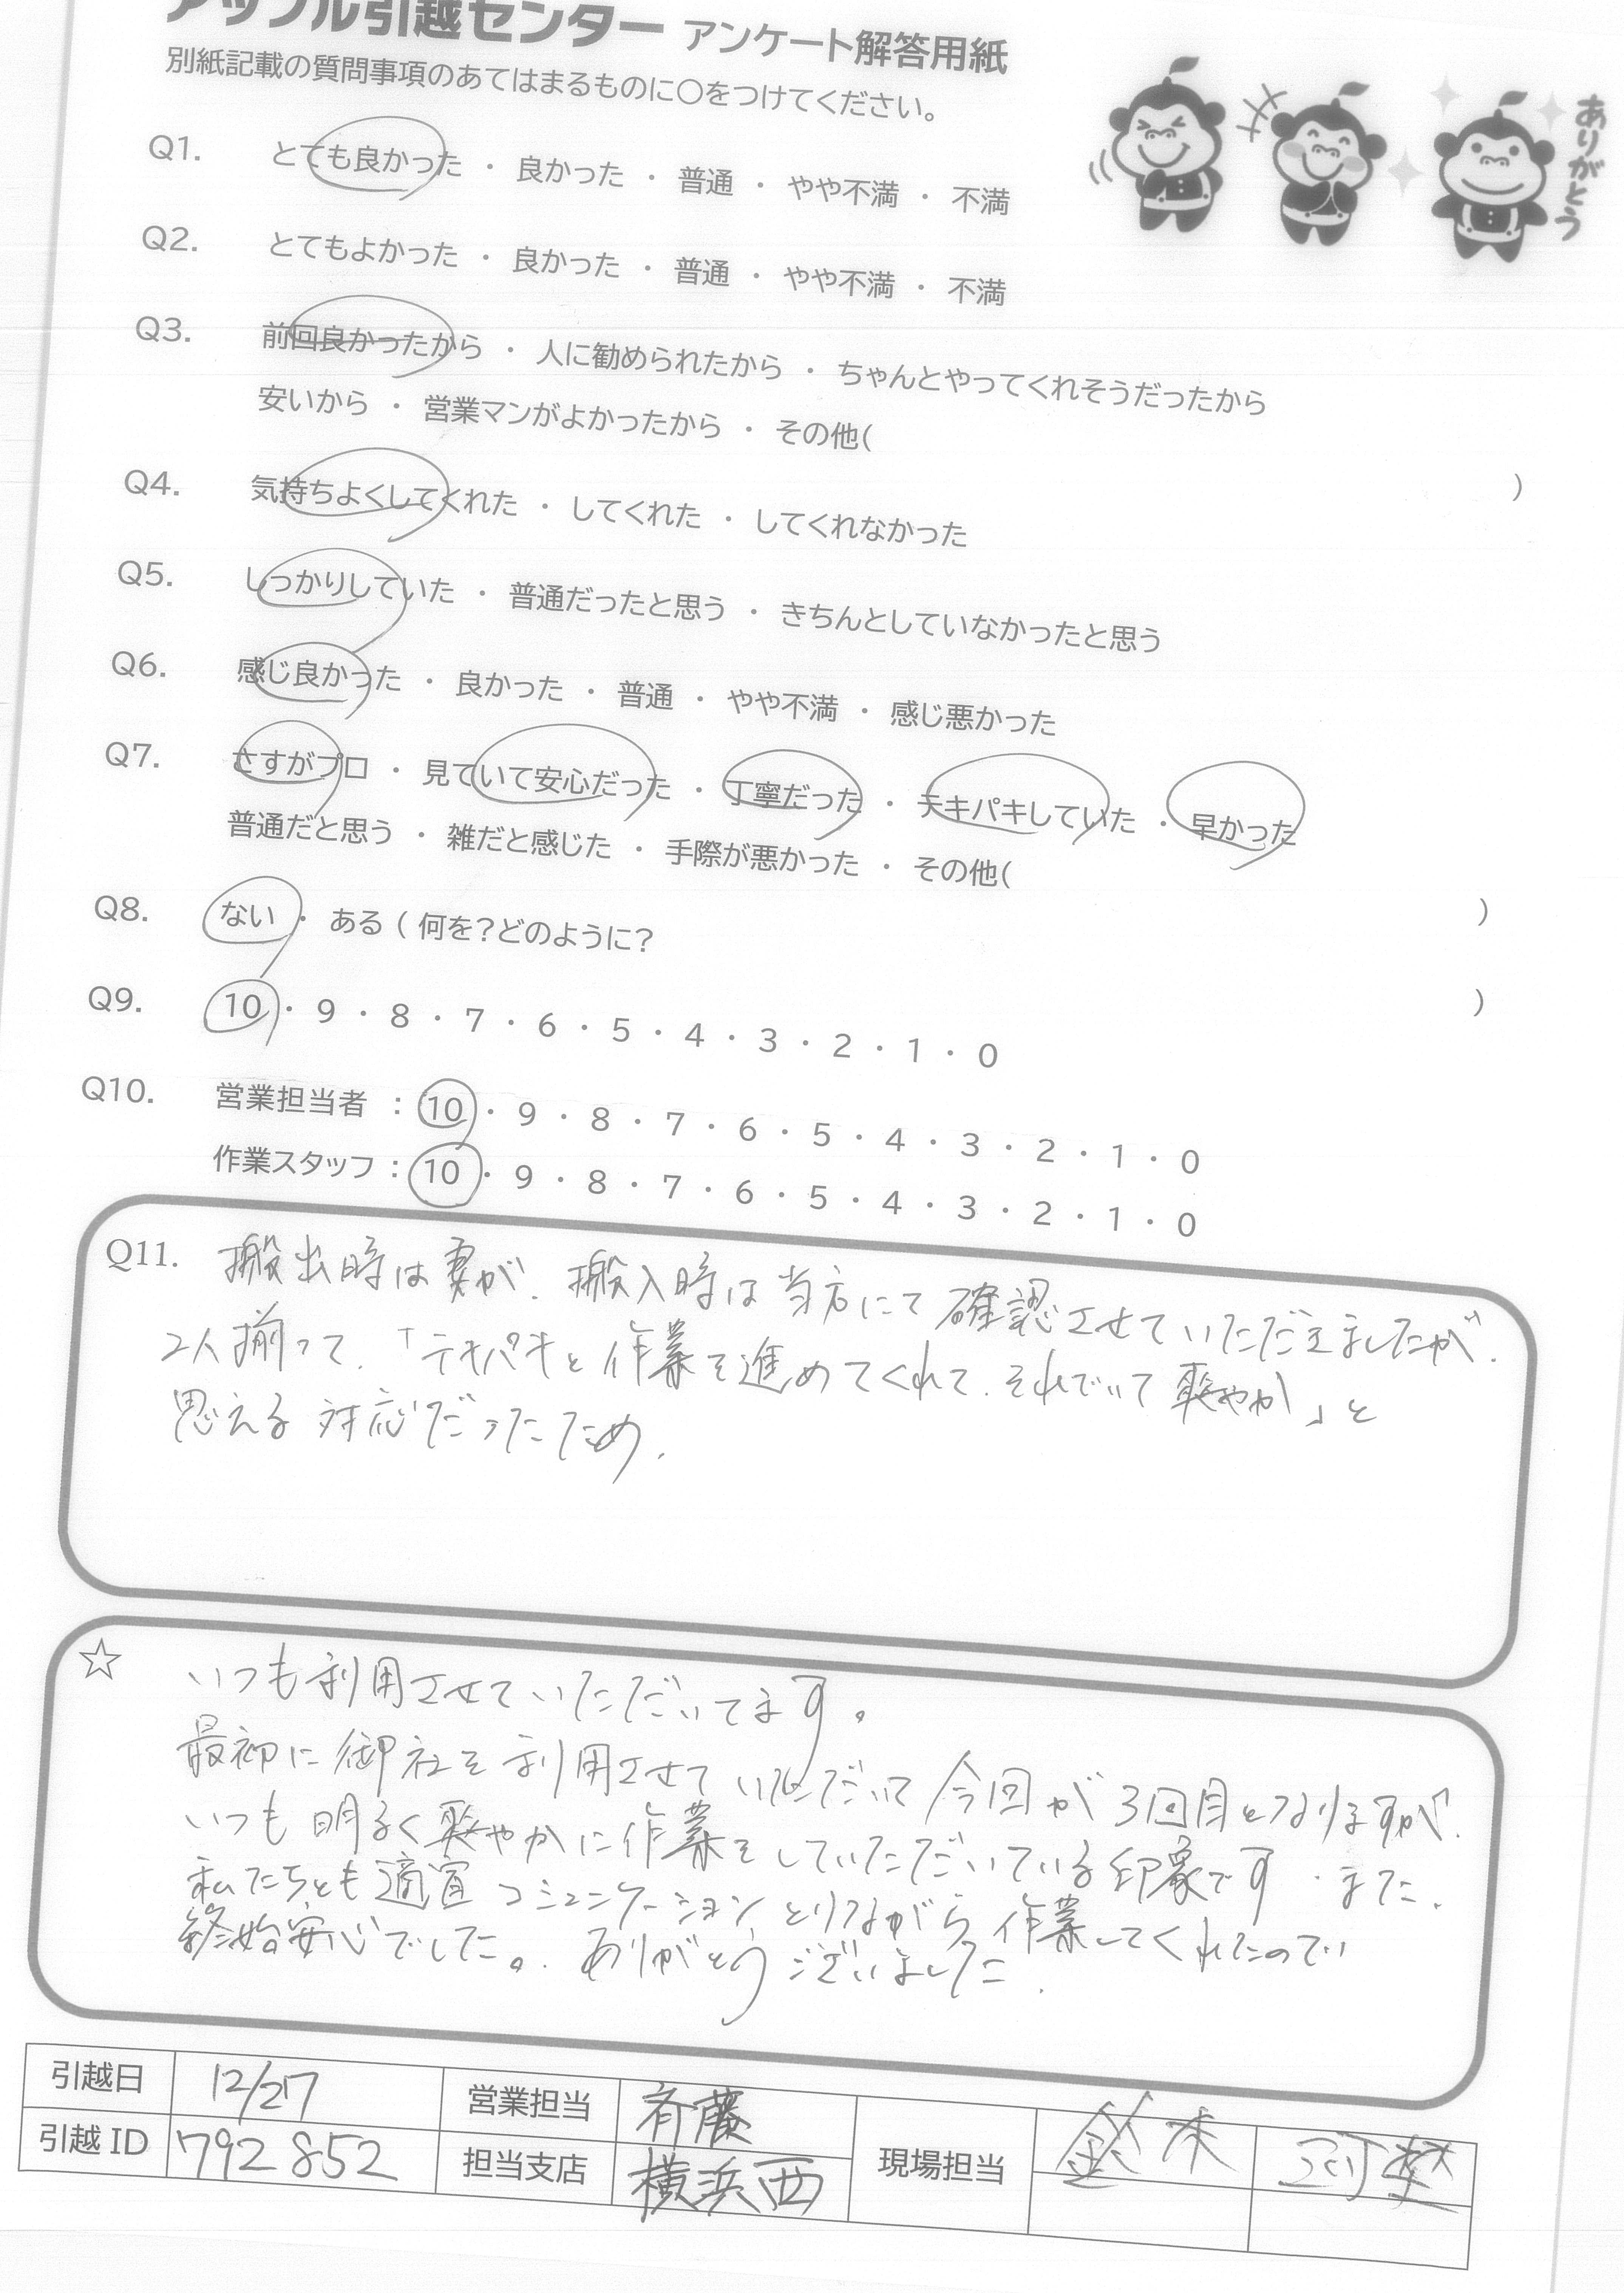 アップル引越センター アンケート解答用紙
別紙記載の質問事項のあてはまるものに〇をつけてください。
ありがとう
Q1. とても良かった ・ 良かった ・ 普通 ・ やや不満 ・ 不満
Q2. とてもよかった ・ 良かった ・ 普通 ・ やや不満 ・ 不満
Q3. 前回良かったから ・ 人に勧められたから ・ ちゃんとやってくれそうだったから
安いから ・ 営業マンがよかったから ・ その他( )
Q4. 気持ちよくしてくれた ・ してくれた ・ してくれなかった
Q5. しっかりしていた ・ 普通だったと思う ・ きちんとしていなかったと思う
Q6. 感じ良かった ・ 良かった ・ 普通 ・ やや不満 ・ 感じ悪かった
Q7. さすがプロ ・ 見ていて安心だった ・ 丁寧だった ・ テキパキしていた ・ 早かった
普通だと思う ・ 雑だと感じた ・ 手際が悪かった ・ その他( )
Q8. ない ・ ある ( 何を?どのように? )
Q9. 10 ・ 9 ・ 8 ・ 7 ・ 6 ・ 5 ・ 4 ・ 3 ・ 2 ・ 1 ・ 0
Q10. 営業担当者 : 10 ・ 9 ・ 8 ・ 7 ・ 6 ・ 5 ・ 4 ・ 3 ・ 2 ・ 1 ・ 0
作業スタッフ : 10 ・ 9 ・ 8 ・ 7 ・ 6 ・ 5 ・ 4 ・ 3 ・ 2 ・ 1 ・ 0
Q11. 搬出時は妻が、搬入時は当方にて確認させていただきましたが、
2人揃って、「テキパキと作業を進めてくれて、それでいて爽やか」と
思える対応だったため。
☆ いつも利用させていただいてます。
最初に御社を利用させていただいて今回が3回目となりますが、
いつも明るく爽やかに作業をしていただいている印象です。また、
私たちとも適宜コミュニケーションとりながら作業してくれたので
終始安心でした。ありがとうございました。
引越日 12/27 営業担当 斉藤 現場担当 鈴木
引越 ID 792852 担当支店 横浜西